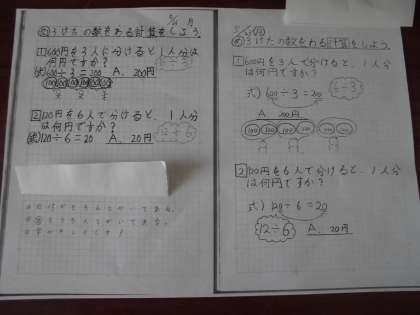 5/16 月
め 3けたの数をわる計算をしよう。
1 600円を3人に分けると1人分は
何円ですか?
式 600÷3=200 A、200円
6÷3
100 100 100 100 100 100
2 120円を6人で分けると、1人分
は何円ですか?
式 120÷6=20 A、20円
12÷6
め 3けたの数をわる計算をしよう。
1 600円を3人で分けると、1人分
は何円ですか?
式) 600÷3=200
6÷3
A 200円
100 100 100 100 100 100
2 120円を6人で分けると、1人分
は何円ですか?
式) 120÷6=20
12÷6 A、20円